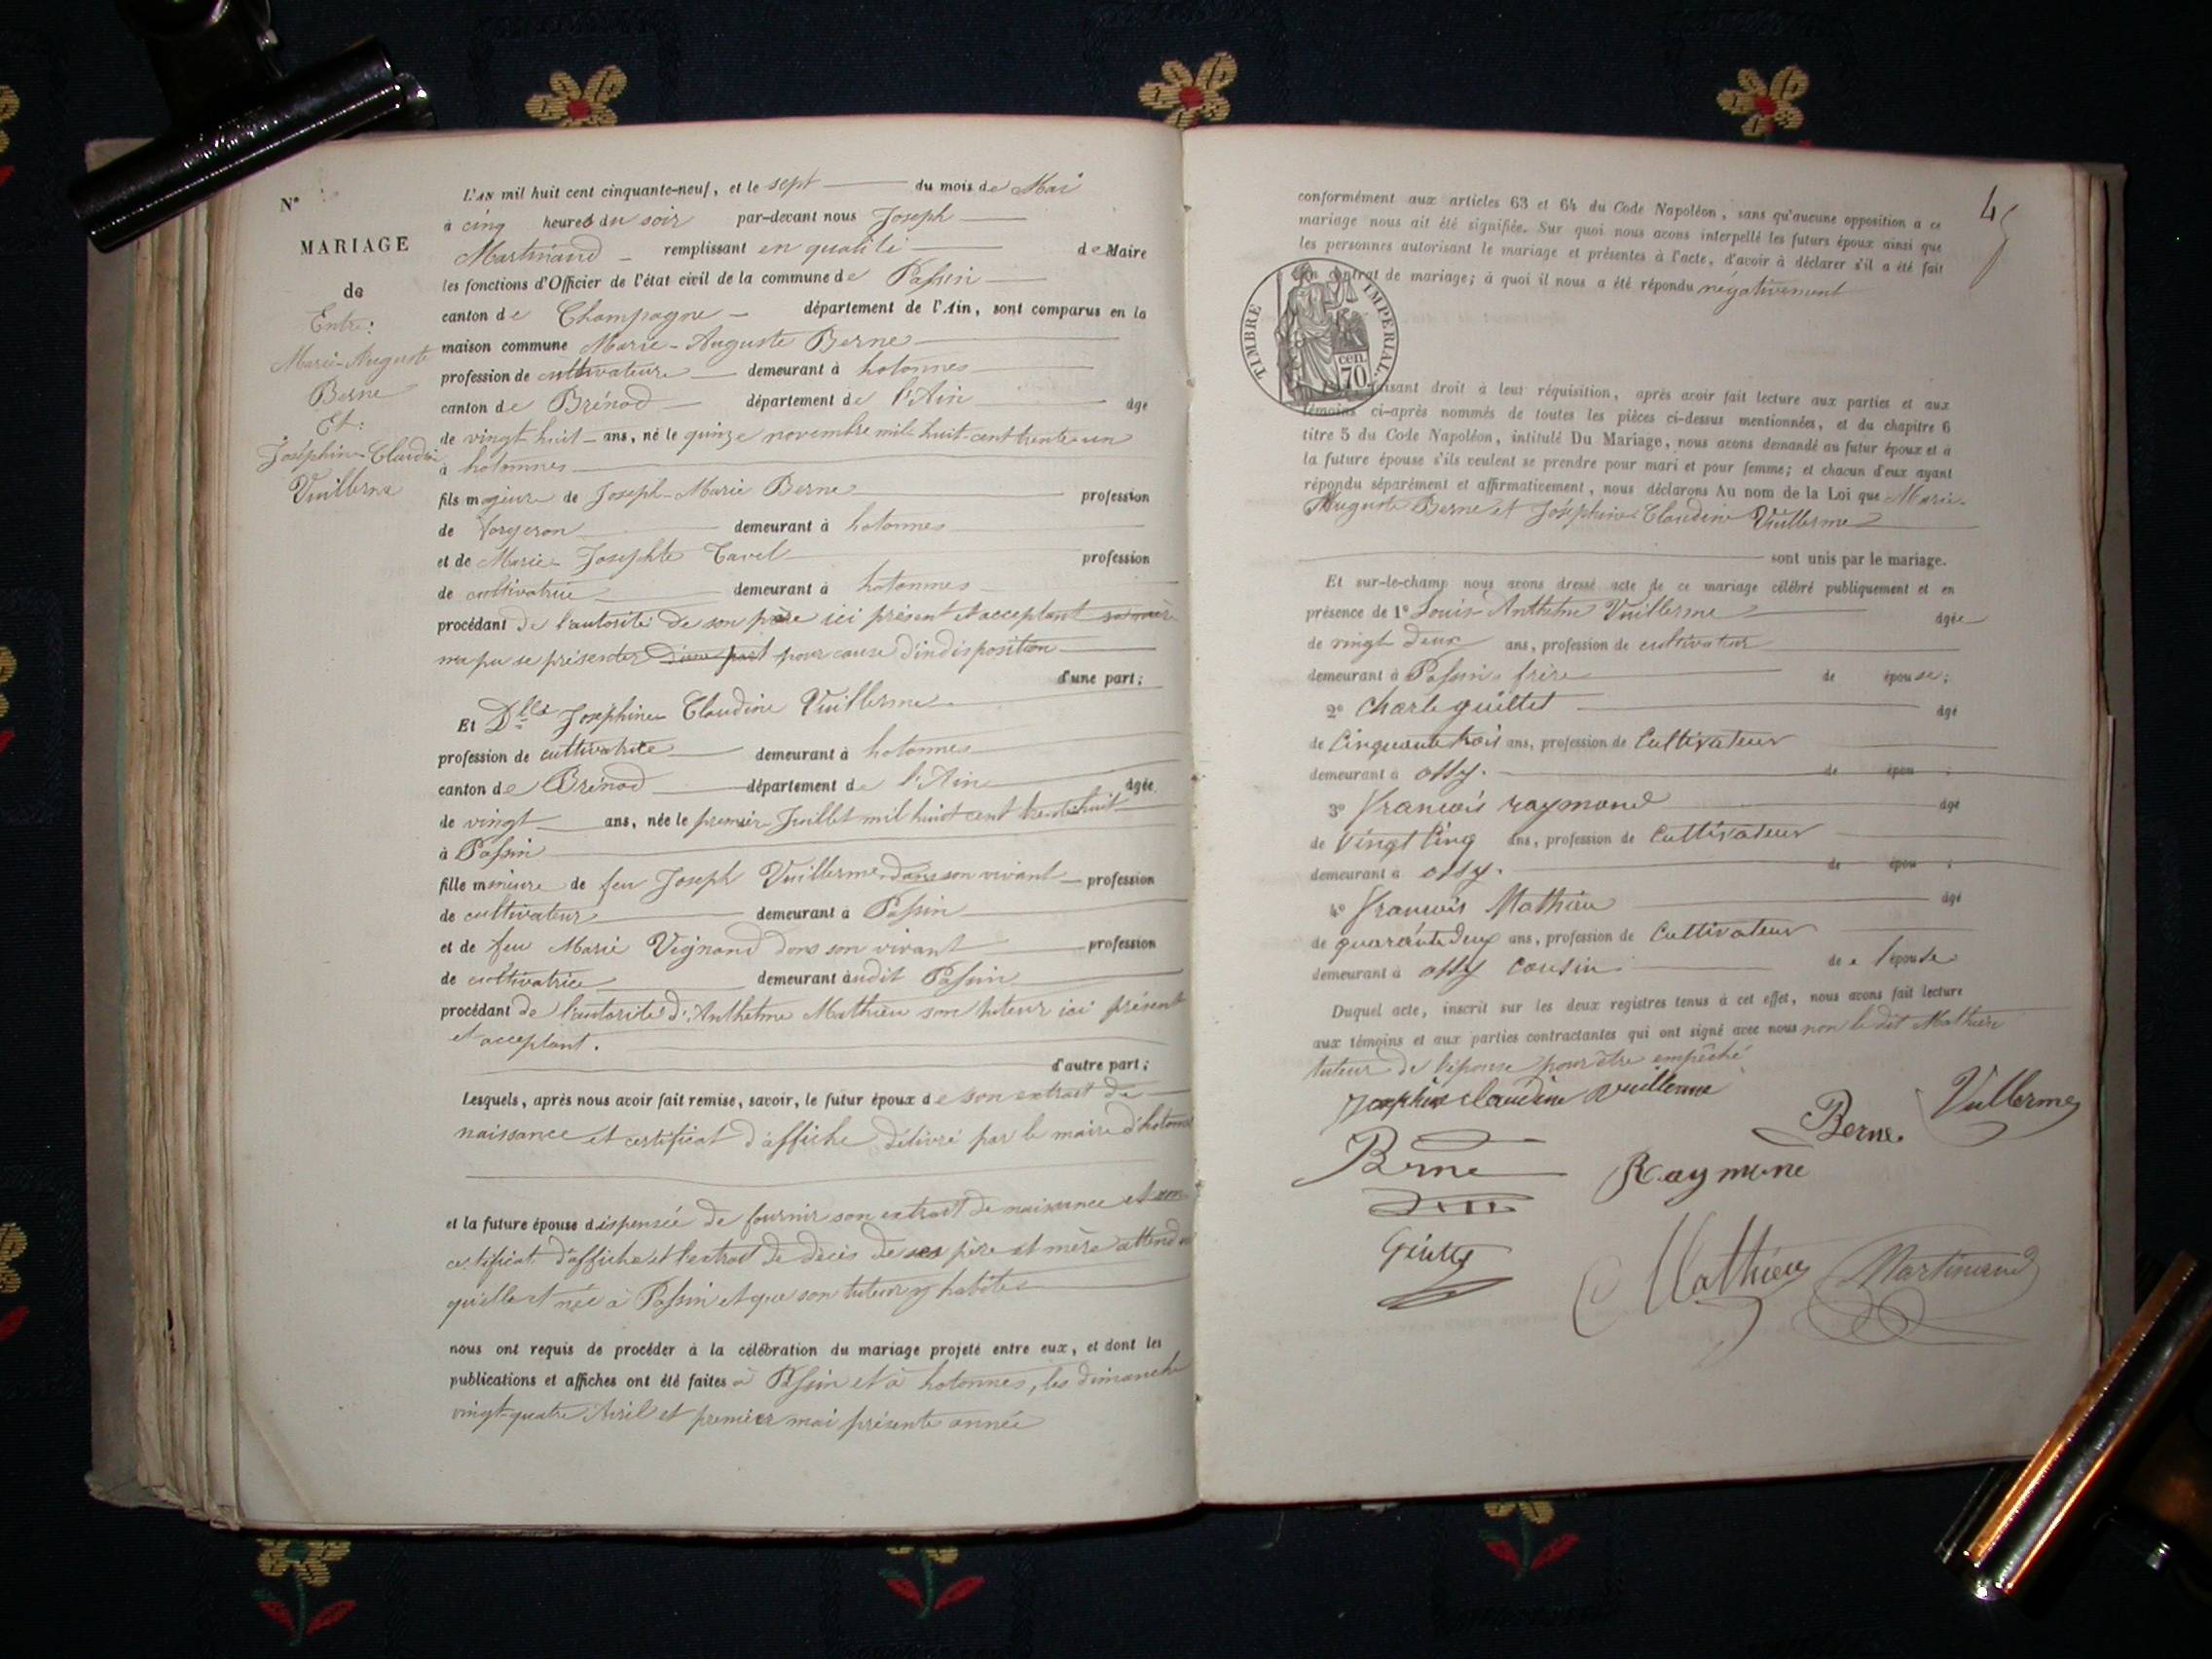 N°
MARIAGE
de
Entre:
Marie-Auguste
Berne
Et:
Joséphine-Claudine
Vuillerme
L'AN mil huit cent cinquante-neuf, et le sept du mois de Mai
à cinq heures du soir par-devant nous Joseph
Martinand remplissant en qualité de Maire
les fonctions d'Officier de l'état civil de la commune de Passin
canton de Champagne département de l'Ain, sont comparus en la
maison commune Marie-Auguste Berne
profession de cultivateur demeurant à hotonnes
canton de Brénod département de l'Ain âgé
de vingt huit ans, né le quinze novembre mil huit-cent trente-un
à hotonnes
fils majeur de Joseph-Marie Berne profession
de forgeron demeurant à hotonnes
et de Marie Josephte Tavel profession
de cultivatrice demeurant à hotonnes
procédant de l'autorité de son père ici présent et acceptant sa mère
n'a pu se présenter d'une part pour cause d'indisposition
d'une part;
Et Dlle Joséphine Claudine Vuillerme
profession de cultivatrice demeurant à hotonnes
canton de Brénod département de l'Ain âgée
de vingt ans, née le premier Juillet mil huit cent trente huit
à Passin
fille mineure de feu Joseph Vuillerme dans son vivant profession
de cultivateur demeurant à Passin
et de feu Marie Vignand dans son vivant profession
de cultivatrice demeurant audit Passin
procédant de l'autorité d'Anthelme Mathieu son tuteur ici présent
et acceptant.
d'autre part;
Lesquels, après nous avoir fait remise, savoir, le futur époux de son extrait de
naissance et certificat d'affiche délivré par le maire d'hotonnes
et la future épouse dispensée de fournir son extrait de naissance et son
certificat d'affiche et l'extrait de décès de ses père et mère attendu
qu'elle est née à Passin et que son tuteur y habite
nous ont requis de procéder à la célébration du mariage projeté entre eux, et dont les
publications et affiches ont été faites à Passin et à hotonnes, les dimanche
vingt-quatre Avril et premier mai présente année
45
conformément aux articles 63 et 64 du Code Napoléon, sans qu'aucune opposition a ce
mariage nous ait été signifiée. Sur quoi nous avons interpellé les futurs époux ainsi que
les personnes autorisant le mariage et présentes à l'acte, d'avoir à déclarer s'il a été fait
un contrat de mariage; à quoi il nous a été répondu négativement
TIMBRE IMPÉRIAL
70 cen.
faisant droit à leur réquisition, après avoir fait lecture aux parties et aux
témoins ci-après nommés de toutes les pièces ci-dessus mentionnées, et du chapitre 6
titre 5 du Code Napoléon, intitulé Du Mariage, nous avons demandé au futur époux et à
la future épouse s'ils veulent se prendre pour mari et pour femme; et chacun d'eux ayant
répondu séparément et affirmativement, nous déclarons Au nom de la Loi que Marie-
Auguste Berne et Joséphine Claudine Vuillerme
sont unis par le mariage.
Et sur-le-champ nous avons dressé acte de ce mariage célébré publiquement et en
présence de 1° Louis Anthelme Vuillerme âgée
de vingt deux ans, profession de cultivateur
demeurant à Passin frère de épouse;
2° Charle guillet âgé
de Cinquante trois ans, profession de Cultivateur
demeurant à ossy. de épou ;
3° françois raymond âgé
de Vingt Cinq ans, profession de Cultivateur
demeurant à ossy. de épou ;
4° françois Mathieu âgé
de quarante deux ans, profession de Cultivateur
demeurant à ossy cousin de l'épouse
Duquel acte, inscrit sur les deux registres tenus à cet effet, nous avons fait lecture
aux témoins et aux parties contractantes qui ont signé avec nous non le dit Mathieu
tuteur de l'épouse pour être empêché
Josephine claudine vuillerme
Vullerme
Berne
Berne
Raymond
Mathieu
Martinand